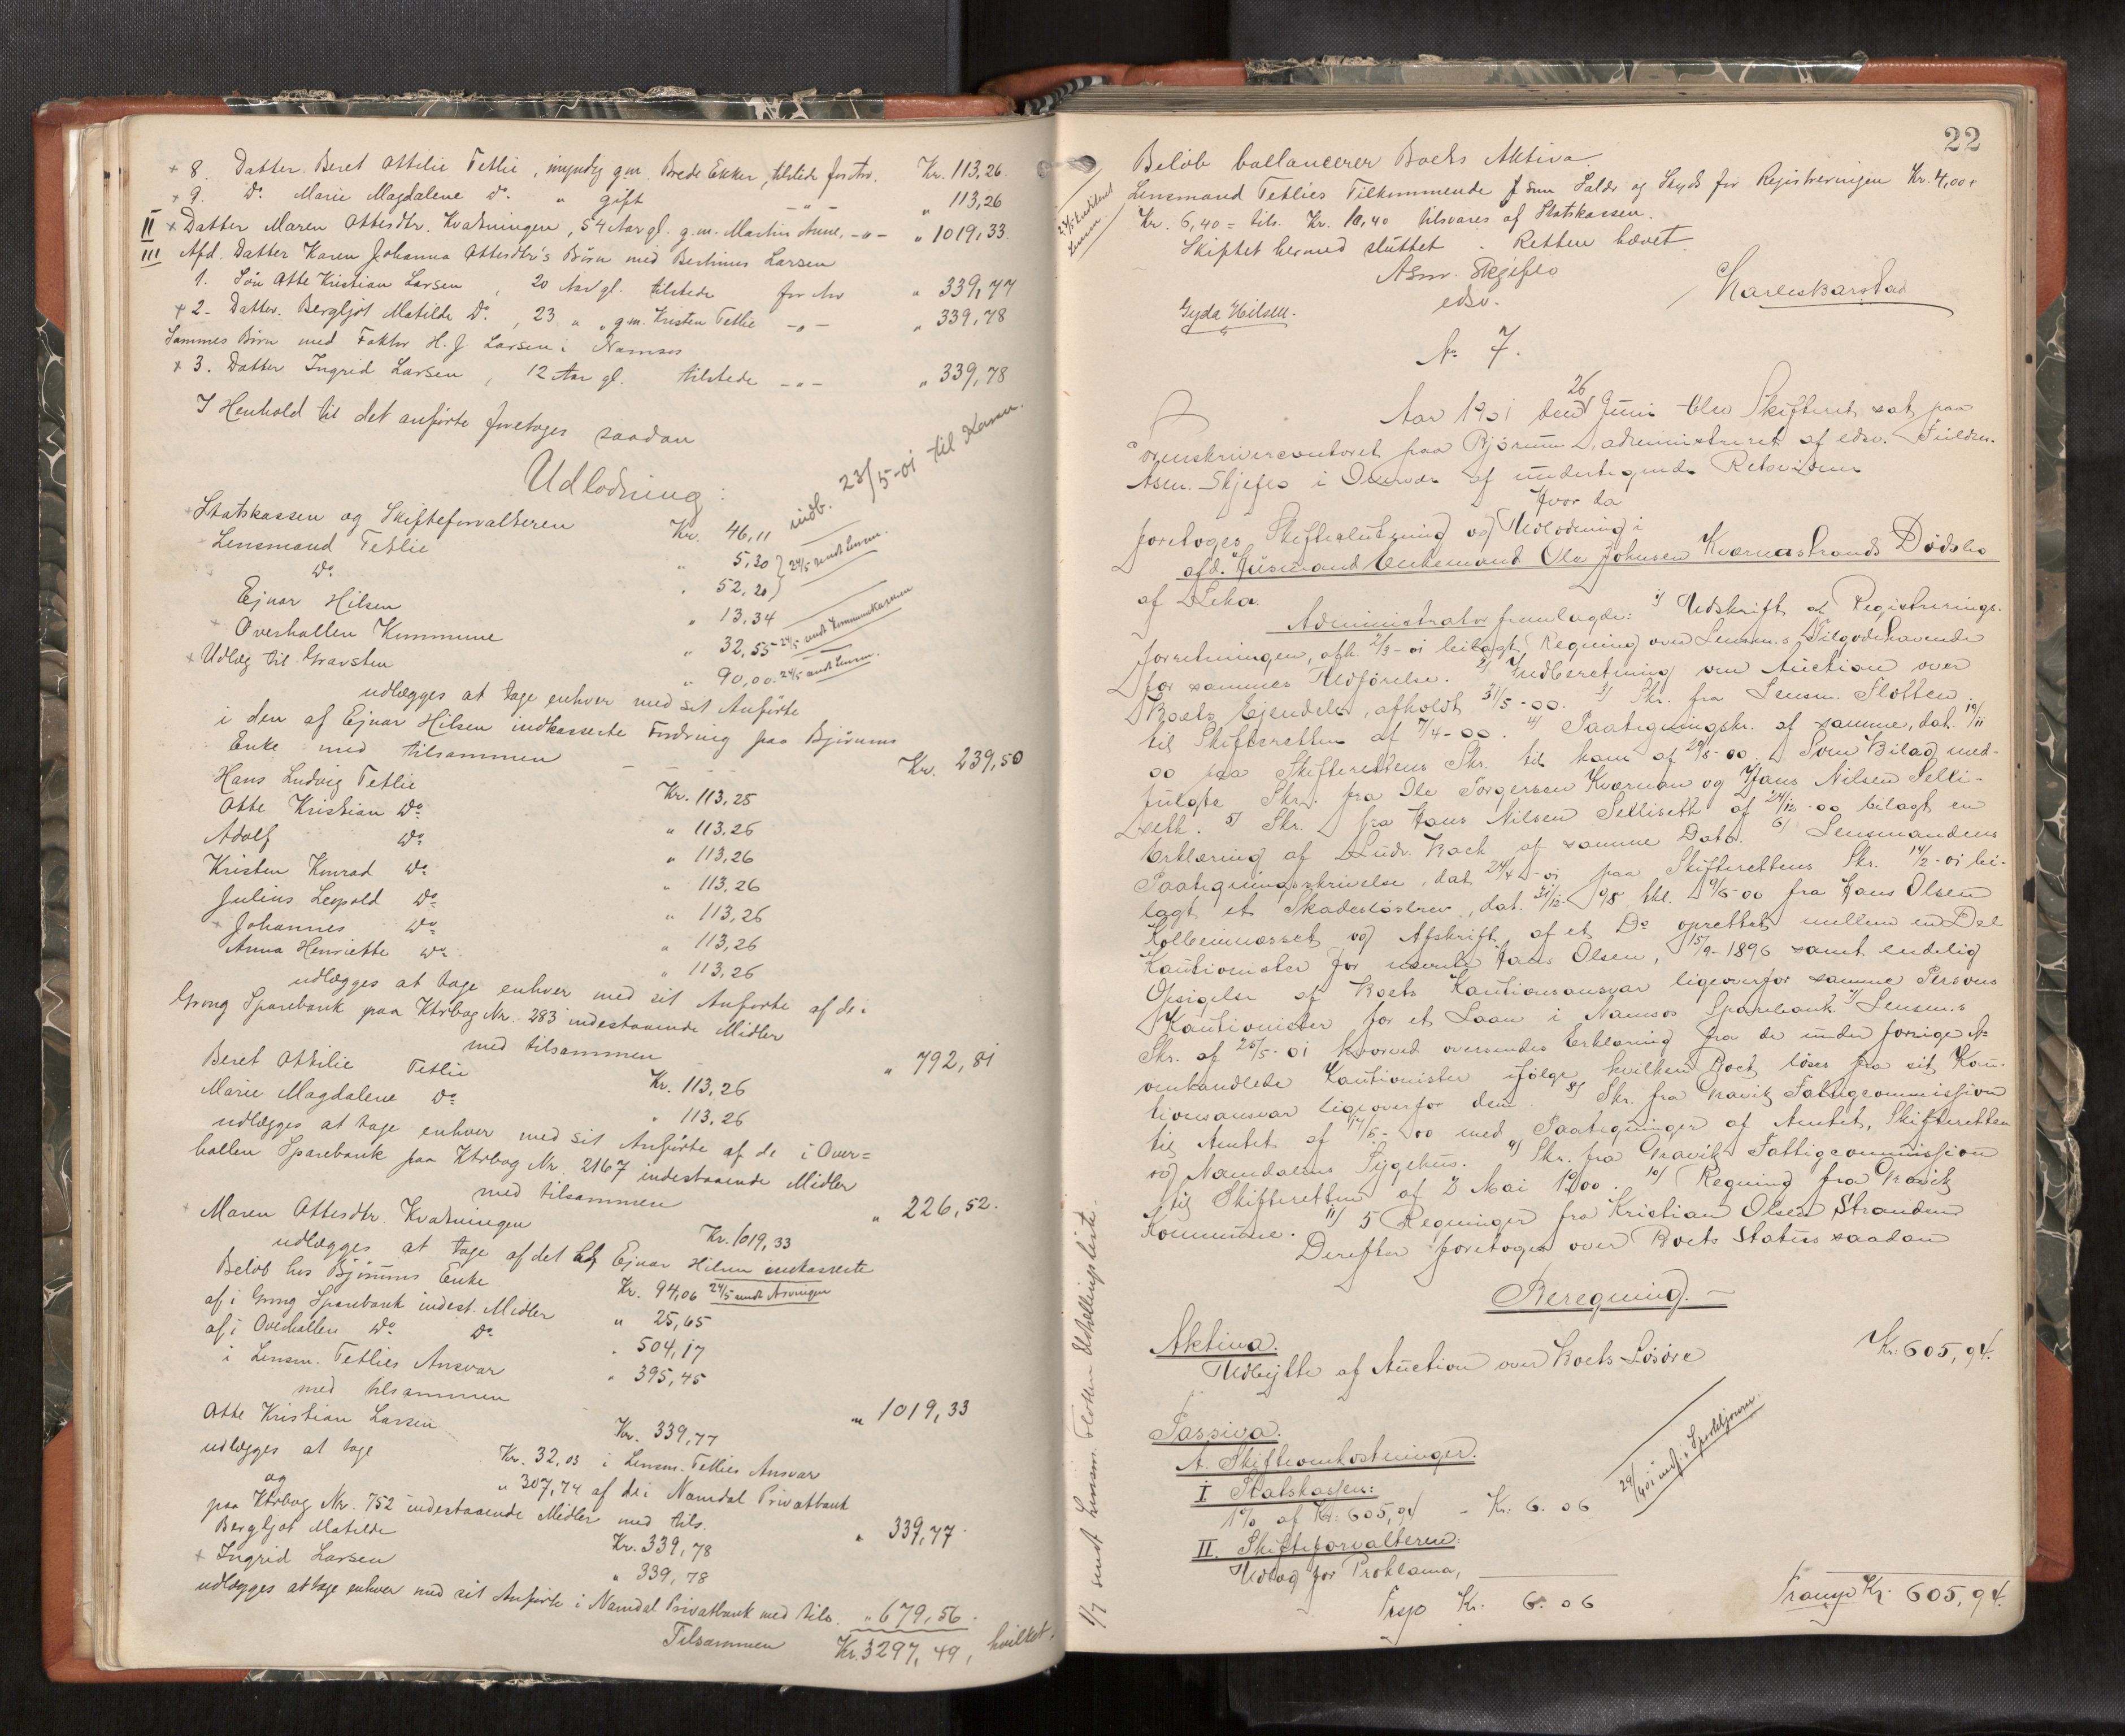 + 8. Datter Beret Ottilie Tetlie, myndig g.m. Brede Ekker, tilstede for Arv. Kr. 113,26
+ 9. Do. Marie Magdalene Do. " gift -"- " 113,26
II + Datter Maren Ottesdtr. Kvatningen, 54 Aar gl. g.m. Martin Aune, -"- " 1019,33
III Afd. Datter Karen Johanna Ottesdtr's Børn med Bertinus Larsen
1. Søn Otte Kristian Larsen, 20 Aar gl. tilstede for Arv " 339,77
+ 2- Datter Bergljot Matilde Do., 23 " " g.m. Kristen Tetlie -"- " 339,78
Sammes Børn med Faktor H. J. Larsen i Namsos
+ 3. Datter Ingrid Larsen, 12 Aar gl. tilstede -"- " 339,78
I Henhold til det anførte foretoges saadan
Udlodning:
+ Statskassen og Skifteforvalteren Kr. 46,11 indb. 23/5-01 til Kassen.
- Lensmand Tetlie " 5,20 } 24/5 sendt Lensm.
Do. " 52,20 }
Ejnar Hilsen " 13,34
+ Overhallen Kommune " 32,55 24/5 sendt Kommunekassen
+ Udlæg til Gravsten " 90,00 24/5 sendt Lensm.
udlægges at tage enhver med sit Anførte
i den af Ejnar Hilsen indkasserte Fordring paa Bjørums
Enke med tilsammen - - - Kr. 239,50
Hans Ludvig Tetlie Kr. 113,25
Otte Kristian Do. " 113,26
Adolf Do. " 113,26
Kristen Konrad Do. " 113,26
Julius Leopold Do. " 113,26
+ Johannes Do. " 113,26
Anna Henriette Do. " 113,26
udlægges at tage enhver med sit Anførte af de i
Grong Sparebank paa Ktrbog Nr. 283 indestaaende Midler
med tilsammen " 792,81
Beret Ottilie Tetlie Kr. 113,26
Marie Magdalene Do. " 113,26
udlægges at tage enhver med sit Anførte af de i Over=
hallen Sparebank paa Ktrbog Nr. 2167 indestaaende Midler
med tilsammen " 226,52.
+ Maren Ottesdtr. Kvatningen Kr. 1019,33
udlægges at tage af det af Ejnar Hilsen indkasserte
Beløb hos Bjørums Enke Kr. 94,06 24/5 sendt Arvingen
af i Grong Sparebank indest. Midler " 25,65
af i Overhallen Do. Do. " 504,17
i Lensm. Tetlies Ansvar " 395,45
med tilsammen " 1019,33
Otte Kristian Larsen Kr. 339,77
udlægges at tage Kr. 32,03 i Lensm. Tetlies Ansvar
og " 307,74 af de i Namdal Privatbank
paa Ktrbog Nr. 752 indestaaende Midler med tils. " 339,77.
Bergljot Matilde Kr. 339,78
+ Ingrid Larsen " 339,78
udlægges at tage enhver med sit Anførte i Namdal Privatbank med tils. " 679,56
Tilsammen Kr. 3297,49, hvilket
22
Beløb ballancerer Boets Aktiva.
Lensmand Tetlies Tilkommende f som Salær og Skyds for Registreringen Kr. 4,00 +
Kr. 6,40 = tils. Kr. 10,40 tilsvares af Statskassen.
Skiftet hermed sluttet. Retten hævet.
Asm. Skjeflo
edsv.
Gyda Hilsen.
No 7.
Aar 1901 den 26 Juni blev Skifteret sat paa
Sorenskrivercontoret paa Bjørum, administreret af edsv. Fuldm.
Asm. Skjeflo i Overvær af undertegnede Retsvidner
Hvor da
foretoges Skifteslutning og Udlodning i
afd. Husmand Enkemand Ole Johnsen Kvernastrands Dødsbo
af Leka.
Administrator fremlagde: 1) Udskrift af Registrerings-
forretningen, afh. 2/3-01 bilagt Regning over Lensm.s Tilgodehavende
for sammes Udførelse. 2) Indberetning om Auction over
Boets Ejendele, afholdt 31/5-00. 3) Skr. fra Lensm. Flotten
til Skifteretten af 7/4-00. 4) Paategningskr. af samme, dat. 19/11
00 paa Skifterettens Skr. til ham af 29/8-00. Som Bilag med-
fulgte Skr. fra Ole Torgersen Kvernan og Hans Nilsen Selli-
seth. 5) Skr. fra Hans Nilsen Selliseth af 24/12-00 bilagt en
Erklæring af Ludv. Bach af samme Dato. 6) Lensmandens
Paategningsskrivelse, dat. 24/4-01 paa Skifterettens Skr. 14/2-01 bi-
lagt et Skadesløsbrev, dat. 31/12-98 thl. 9/6-00 fra Hans Olsen
Kolbeinnesset og Afskrift af et Do oprettet mellem en Del
Kautionister for nævnte Hans Olsen, 15/9-1896 samt endelig
Opsigelse af Boets Kautionsansvar ligeoverfor samme Persons
Kautionister for et Laan i Namsos Sparebank. 7) Lensm.s
Skr. af 25/5-01 hvorved oversendes Erklæring fra de under forrige No
omhandlede Kautionister ifølge hvilken Boet løses fra sit Kau-
tionsansvar ligeoverfor dem. 8) Skr. fra Gravik Fattigcommission
til Amtet af 14/5-00 med Paategninger af Amtet, Skifteretten
og Namdalens Sygehus. 9) Skr. fra Gravik Fattigcommission
til Skifteretten af 2 Mai 1900. 10) Regning fra Gravik
Kommune. 11) 5 Regninger fra Kristian Olsen Stranden
Derefter foretoges over Boets Status saadan
Beregning. -
Aktiva.
Udbytte af Auction over Boets Løsøre Kr. 605,94.
Passiva.
A. Skifteomkostninger.
I Statskassen:
1% af Kr. 605,94 - Kr. 6.06
II. Skifteforvalteren:
Udlæg for Proklama,
Trsp Kr. 6.06 Transp Kr. 605,94.
1/7 sendt Lensm. Flotten Udlodningsliste.